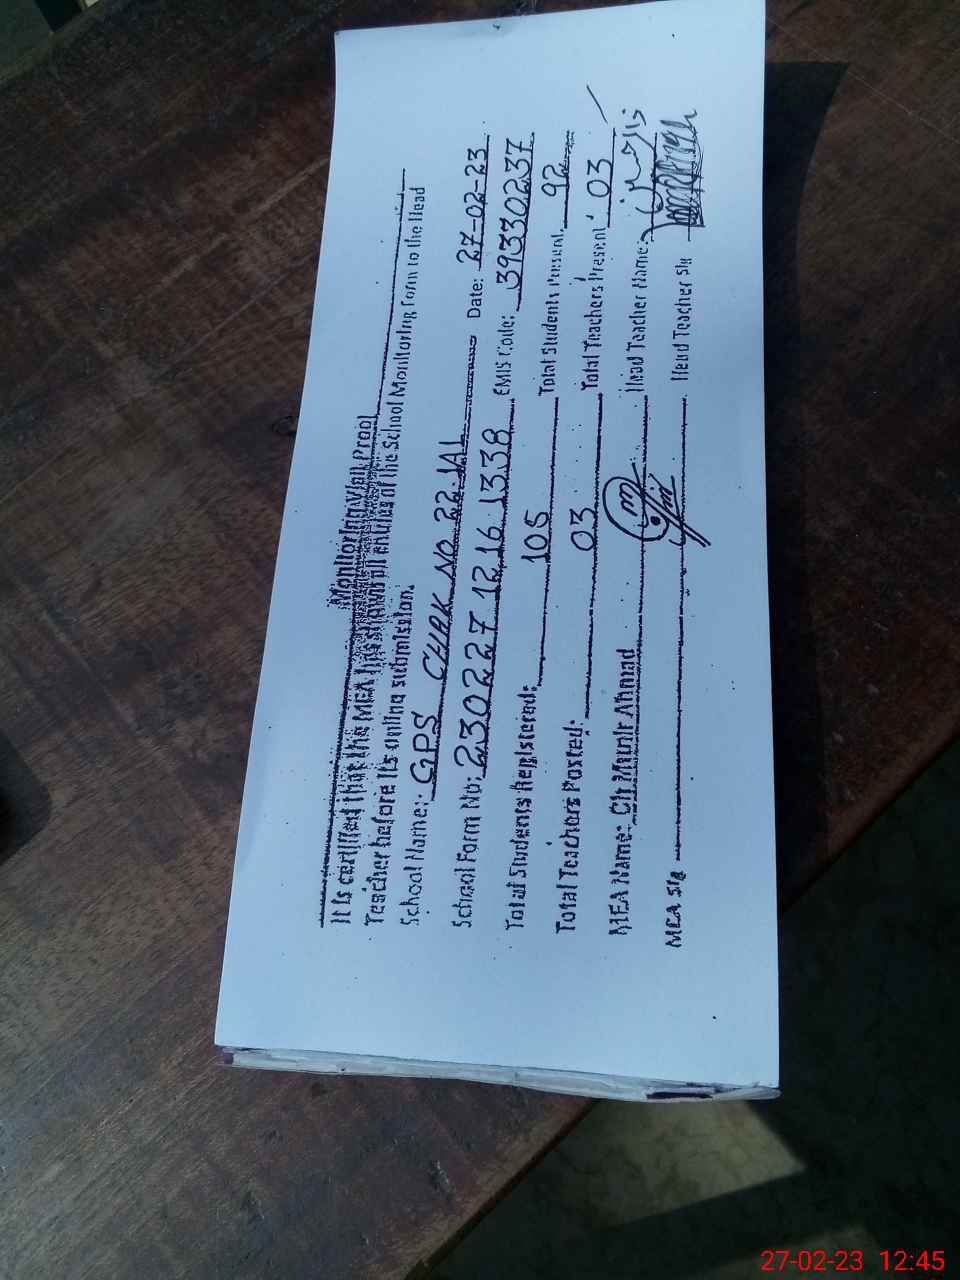 Monitoring Visit Proof
It is certified that the MEA has shown all entries of the School Monitoring Form to the Head
Teacher before its online submission.
School Name: GPS CHAK NO 22 JAL Date: 27-02-23
School Form No: 230227 12 16 1338 EMIS Code: 39330237
Total Students Registered: 105 Total Students Present: 92
Total Teachers Posted: 03 Total Teachers Present: 03
MEA Name: Ch Munir Ahmad Head Teacher Name:
MEA Sig Head Teacher Sig
27-02-23 12:45